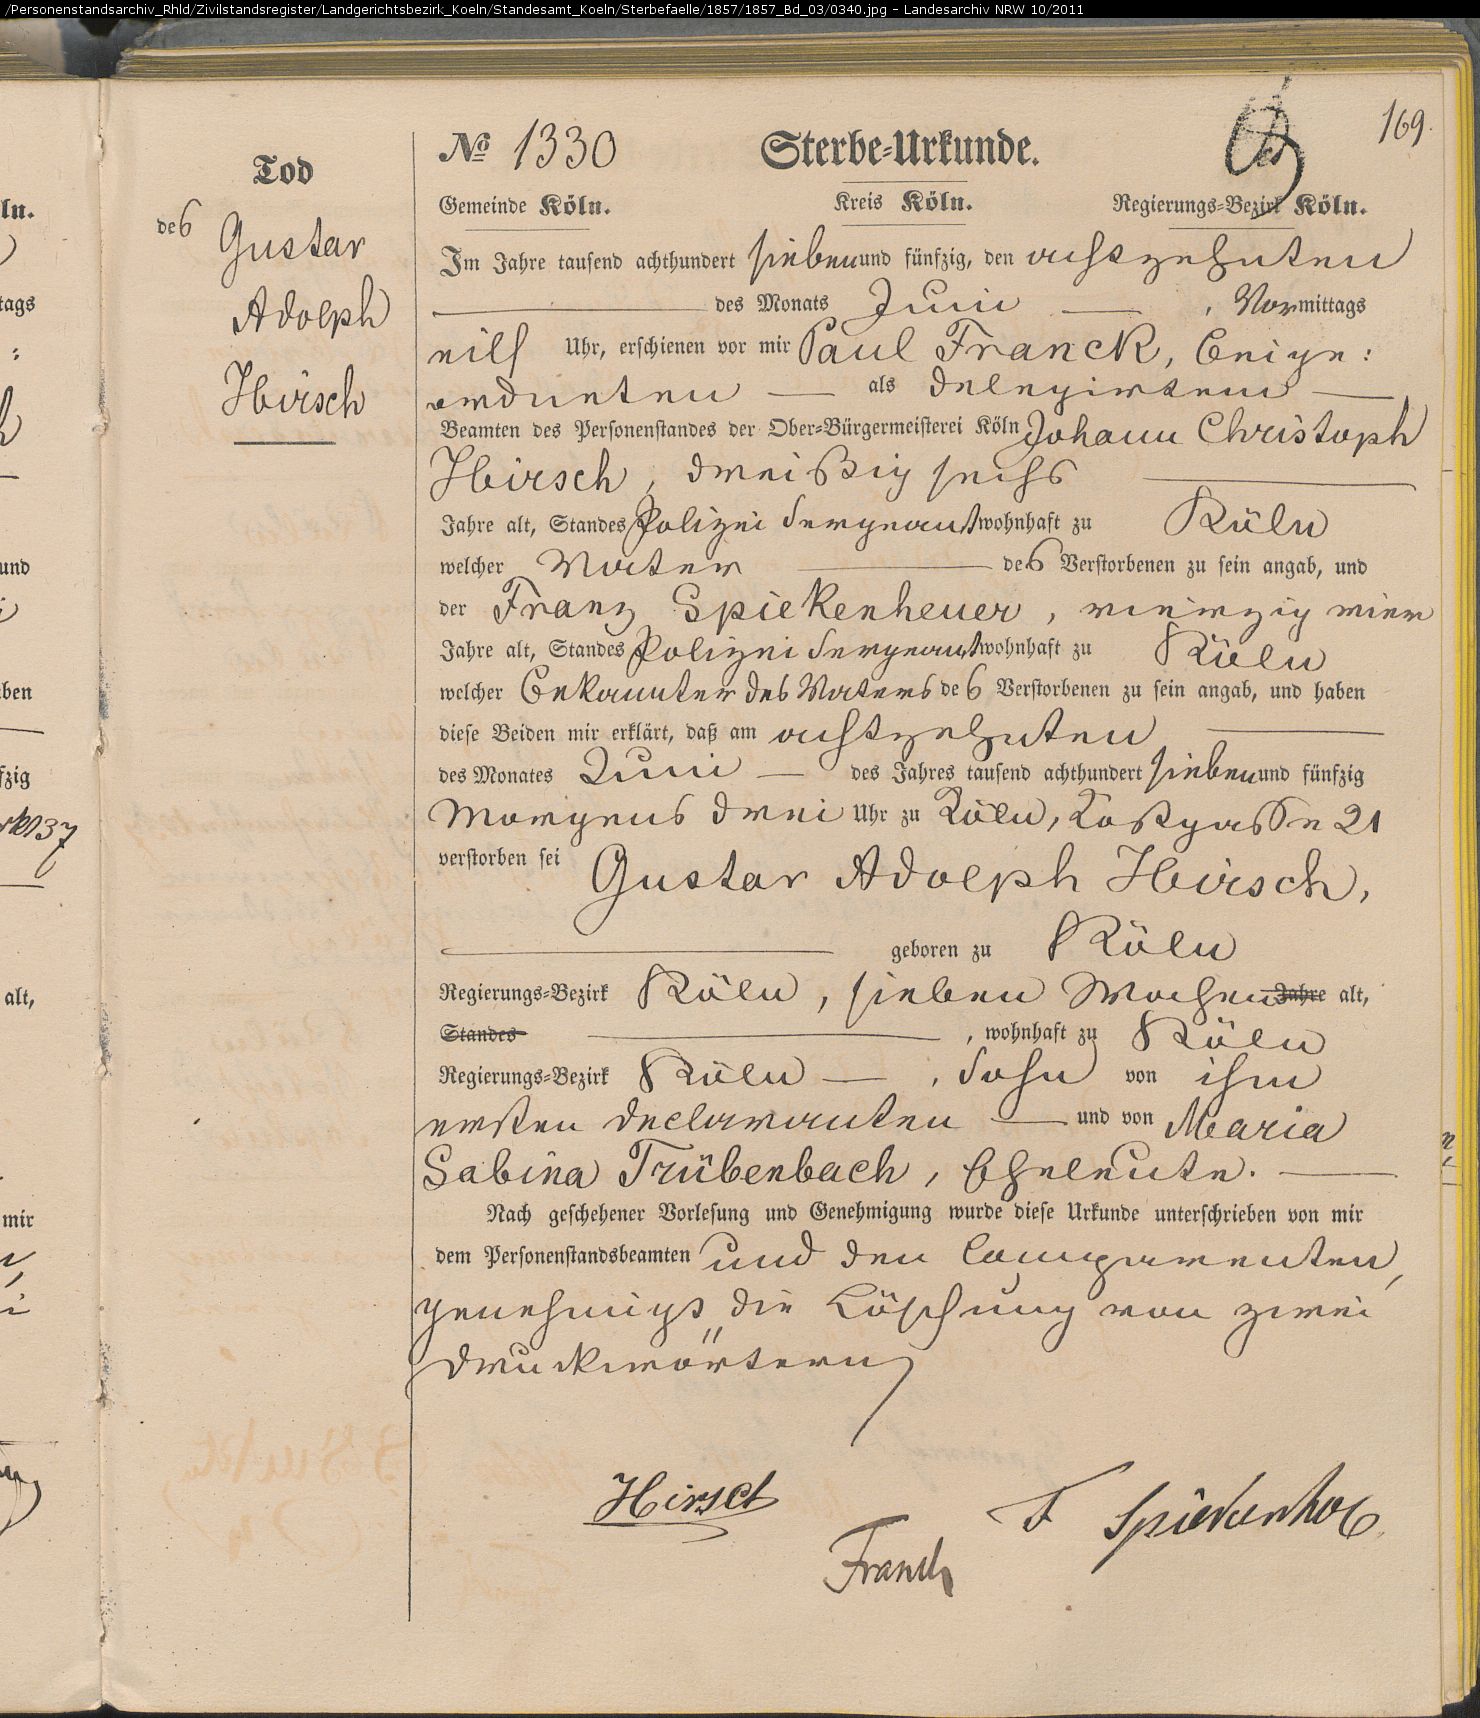 /Personenstandsarchiv_Rhld/Zivilstandsregister/Landgerichtsbezirk_Koeln/Standesamt_Koeln/Sterbefaelle/1857/1857_Bd_03/0340.jpg - Landesarchiv NRW 10/2011
169.
№ 1330 Sterbe-Urkunde.
Gemeinde Köln. Kreis Köln. Regierungs-Bezirk Köln.
Tod
des Gustav
Adolph
Hirsch
Im Jahre tausend achthundert siebenund fünfzig, den achtzehnten
des Monats Juni, Vormittags
eilf Uhr, erschienen vor mir Paul Franck, Beige:
ordneten als delegirtem
Beamten des Personenstandes der Ober-Bürgermeisterei Köln Johann Christoph
Hirsch, dreißig sechs
Jahre alt, Standes Polizei Sergeant wohnhaft zu Köln
welcher Vater des Verstorbenen zu sein angab, und
der Franz Spickenheuer, vierzig vier
Jahre alt, Standes Polizei Sergeant wohnhaft zu Köln
welcher Bekannter des Vaters des Verstorbenen zu sein angab, und haben
diese Beiden mir erklärt, daß am achtzehnten
des Monates Juni des Jahres tausend achthundert siebenund fünfzig
Morgens drei Uhr zu Köln, 21
verstorben sei Gustav Adolph Hirsch,
geboren zu Köln
Regierungs-Bezirk Köln, sieben Wochen Jahre alt,
Standes , wohnhaft zu Köln
Regierungs-Bezirk Köln , Sohn von ihm
ersten Declaranten und von Maria
Sabina Trübenbach, Eheleute.
Nach geschehener Vorlesung und Genehmigung wurde diese Urkunde unterschrieben von mir
dem Personenstandsbeamten und den Comparenten,
genehmigt die Löschung von zwei
Druckwörtern
Hirsch
F Spickenheuer
Franck
ln.
tags
und
ben
fzig
alt,
mir